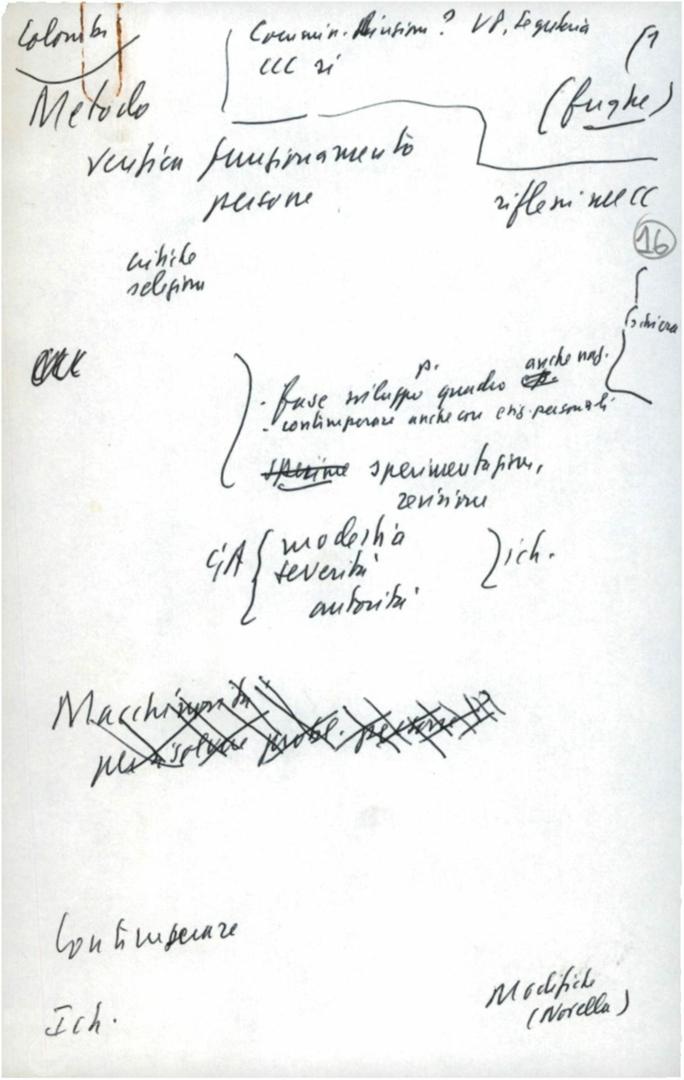 Colombi
Commin. Divisioni? VP, Segreteria
CCC si
Metodo
(fughe)
verifica funzionamento
persone
riflessi nel CC
16
critiche
selezione
Schiera
p.
anche naz.
- fase sviluppo quadro
- contemperare anche con esig. personali
sperimentazione,
revisione
GA modestia
severità
autorità
ich.
Macchinosità
per risolvere probl. persone
Contemperare
Ich.
Modifiche
(Novella)